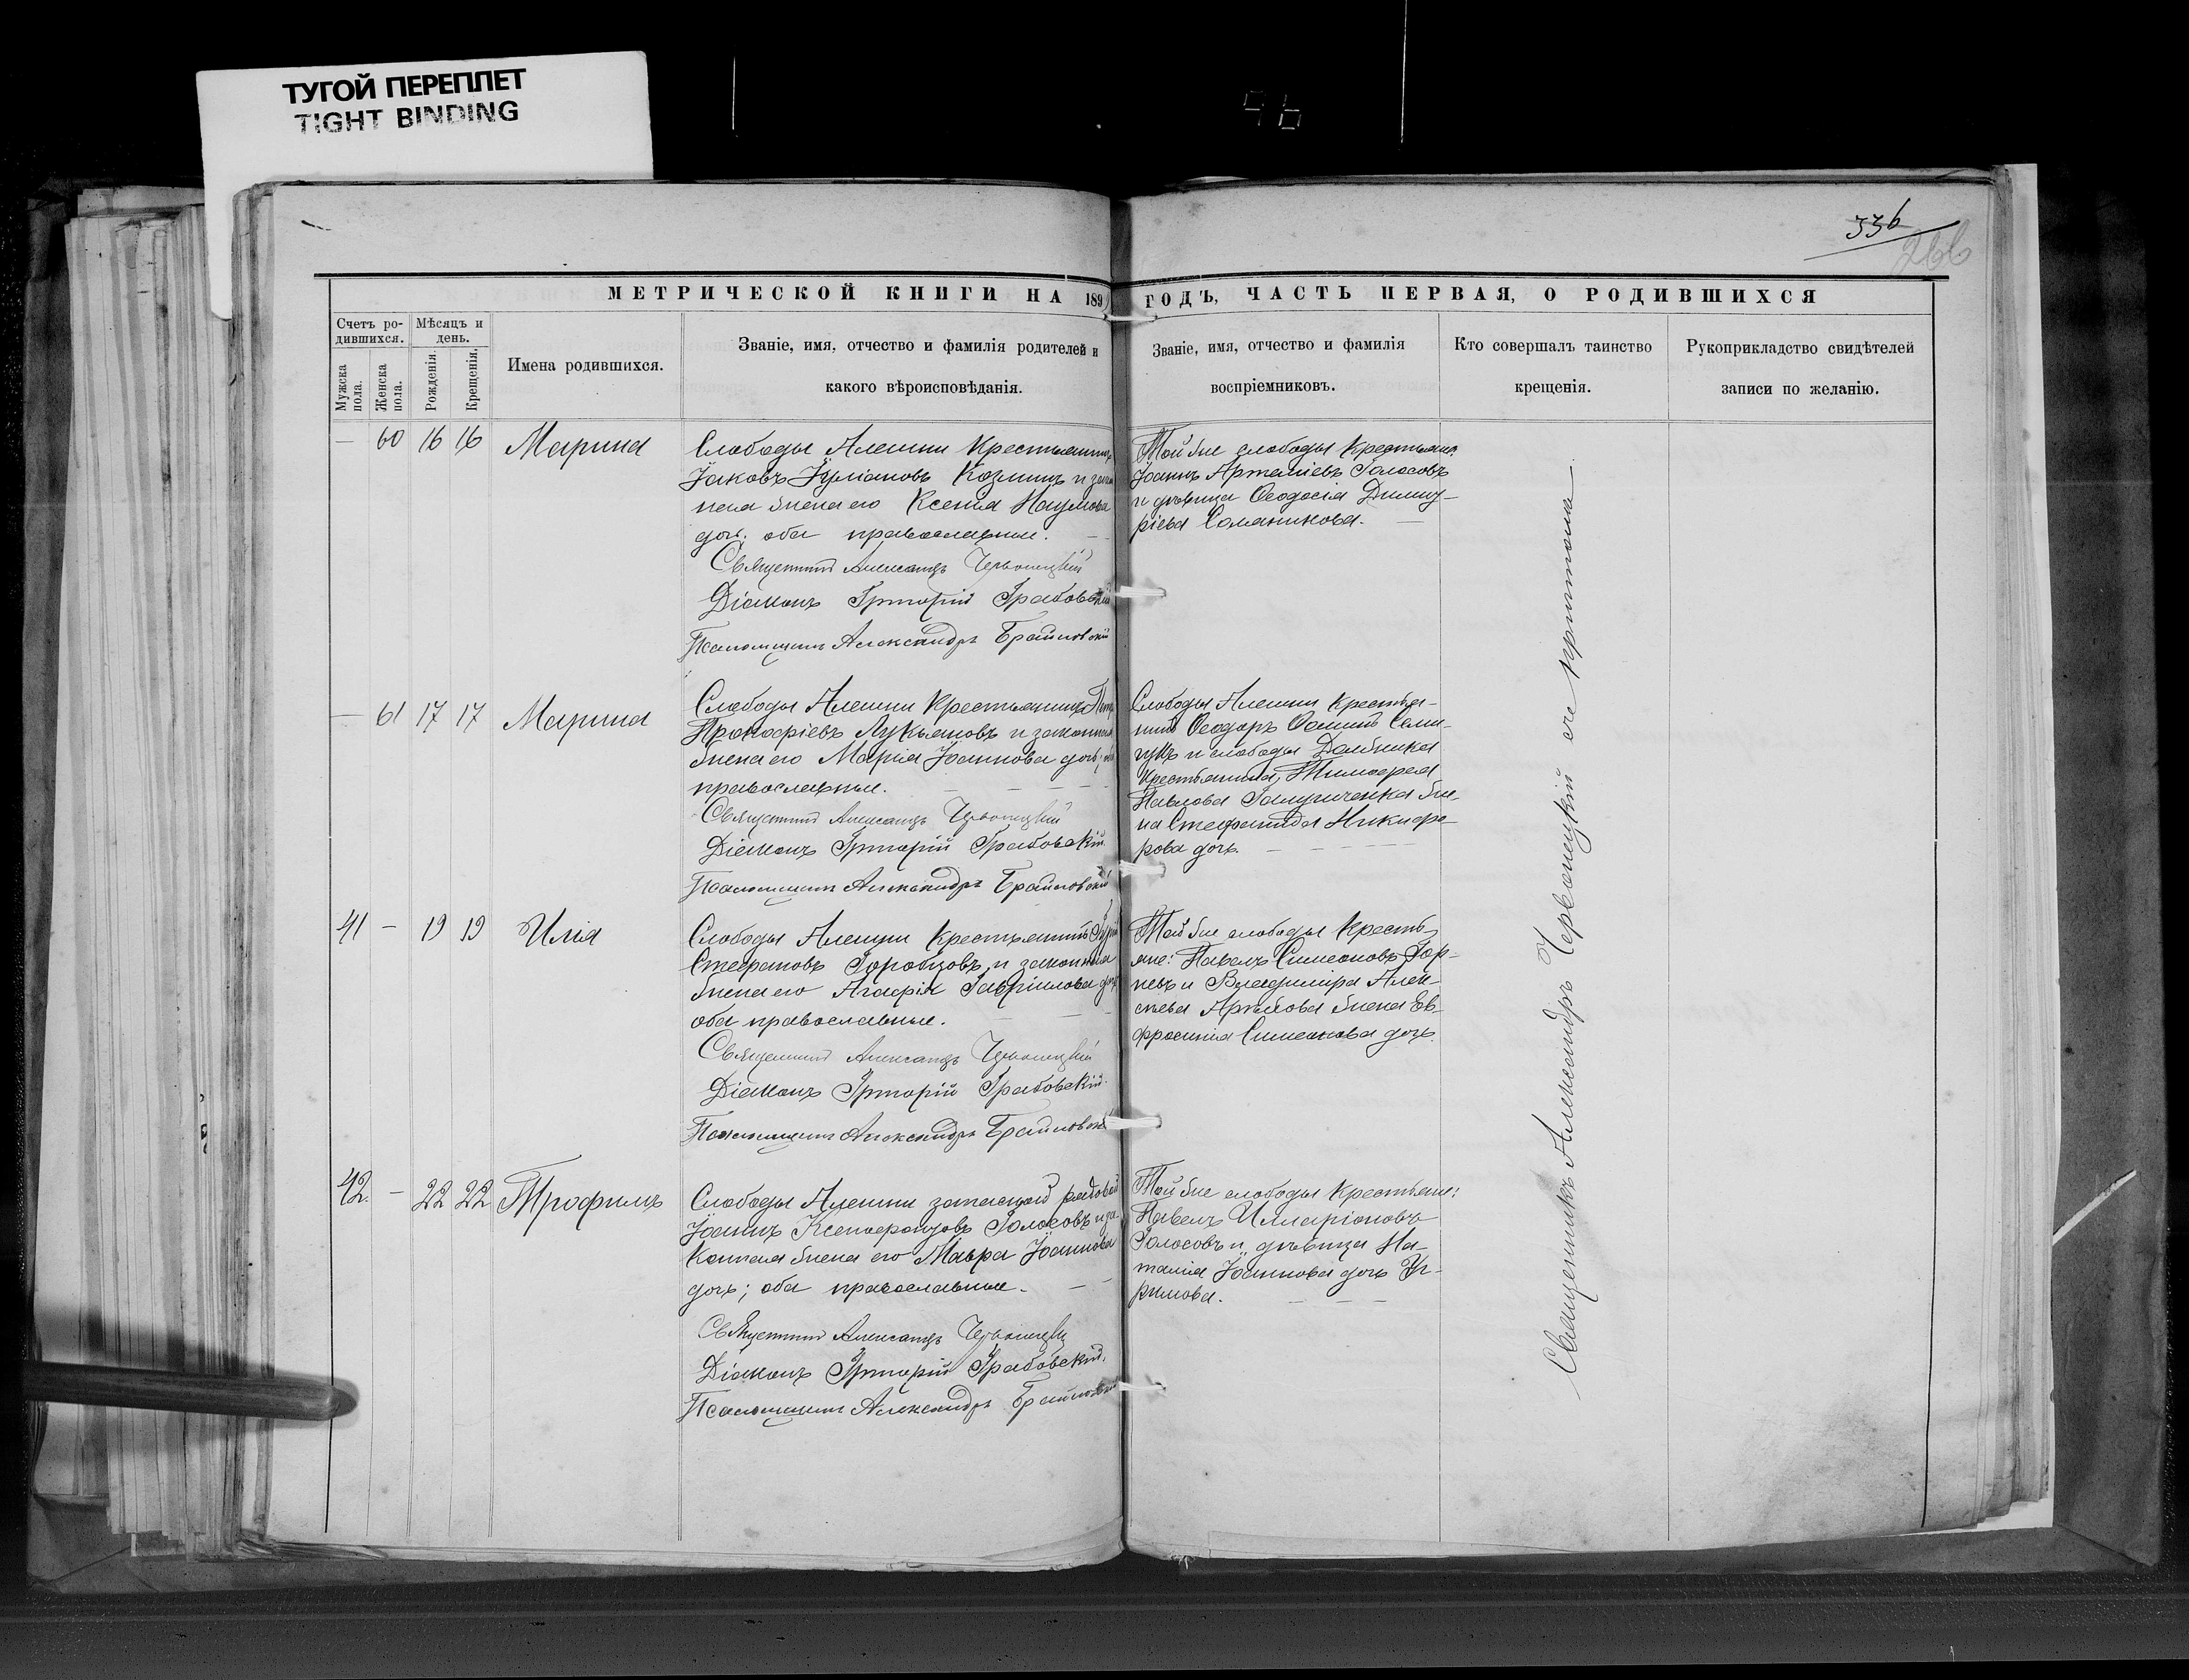 ТУГОЙ ПЕРЕПЛЕТ
TIGHT BINDING
96
336
266
МЕТРИЧЕСКОЙ КНИГИ НА 189 ГОДЪ, ЧАСТЬ ПЕРВАЯ, О РОДИВШИХСЯ
Счетъ ро-
дившихся.
Мужска
пола.
Женска
пола.
Мѣсяцъ и
день.
Рожденія.
Крещенія.
Имена родившихся.
Званіе, имя, отчество и фамилія родителей и
какого вѣроисповѣданія.
Званіе, имя, отчество и фамилія
воспріемниковъ.
Кто совершалъ таинство
крещенія.
Рукоприкладство свидѣтелей
записи по желанію.
— 60 16 16 Марина
Слободы Алешни крестьянинъ
Іаковъ Іуліановъ Козминъ и закон
ная жена его Ксенія Наумова
дочь; оба православные.
Священникъ Александръ Червонецкій
Діаконъ Григорій Грабовскій
Псаломщикъ Александръ Браиловскій
Той же слободы крестьяне:
Іоаннъ Артеміевъ Голосовъ
и дѣвица Ѳеодосія Димит-
ріева Соманикова.
— 61 17 17 Марина
Слободы Алешни крестьянинъ
Прокофіевъ Лукьяновъ и законная
жена его Марія Іоаннова дочь;
православные.
Священникъ Александръ Червонецкій
Діаконъ Григорій Грабовскій
Псаломщикъ Александръ Браиловскій
Слободы Алешни крестья-
нинъ Ѳеодоръ Ѳоминъ Семи-
и слободы
крестьянина, Тимофея
Павлова Галушченка же-
на Стефанида Никифо-
рова дочь.
41 — 19 19 Илія
Слободы Алешни крестьянинъ
Стефановъ Горобцовъ и законная
жена его Агафія Гавріилова дочь
оба православные.
Священникъ Александръ Червонецкій
Діаконъ Григорій Грабовскій
Псаломщикъ Александръ Браиловскій
Той же слободы крестья
яне: Павелъ Симеоновъ
и Владиміра Алек-
сѣева жена Ев-
фросинія Симеонова дочь.
42. — 22 22 Трофимъ
Слободы Алешни запасной рядовой
Іоаннъ Ксенофонтовъ Голосовъ и за
конная жена его Мавра Іоаннова
дочь; оба православные.
Священникъ Александръ Червонецкій
Діаконъ Григорій Грабовскій
Псаломщикъ Александръ Браиловскій
Той же слободы крестьяне:
Павелъ Илларіоновъ
Голосовъ и дѣвица На-
талія Іоаннова дочь
Священникъ Александръ Червонецкій